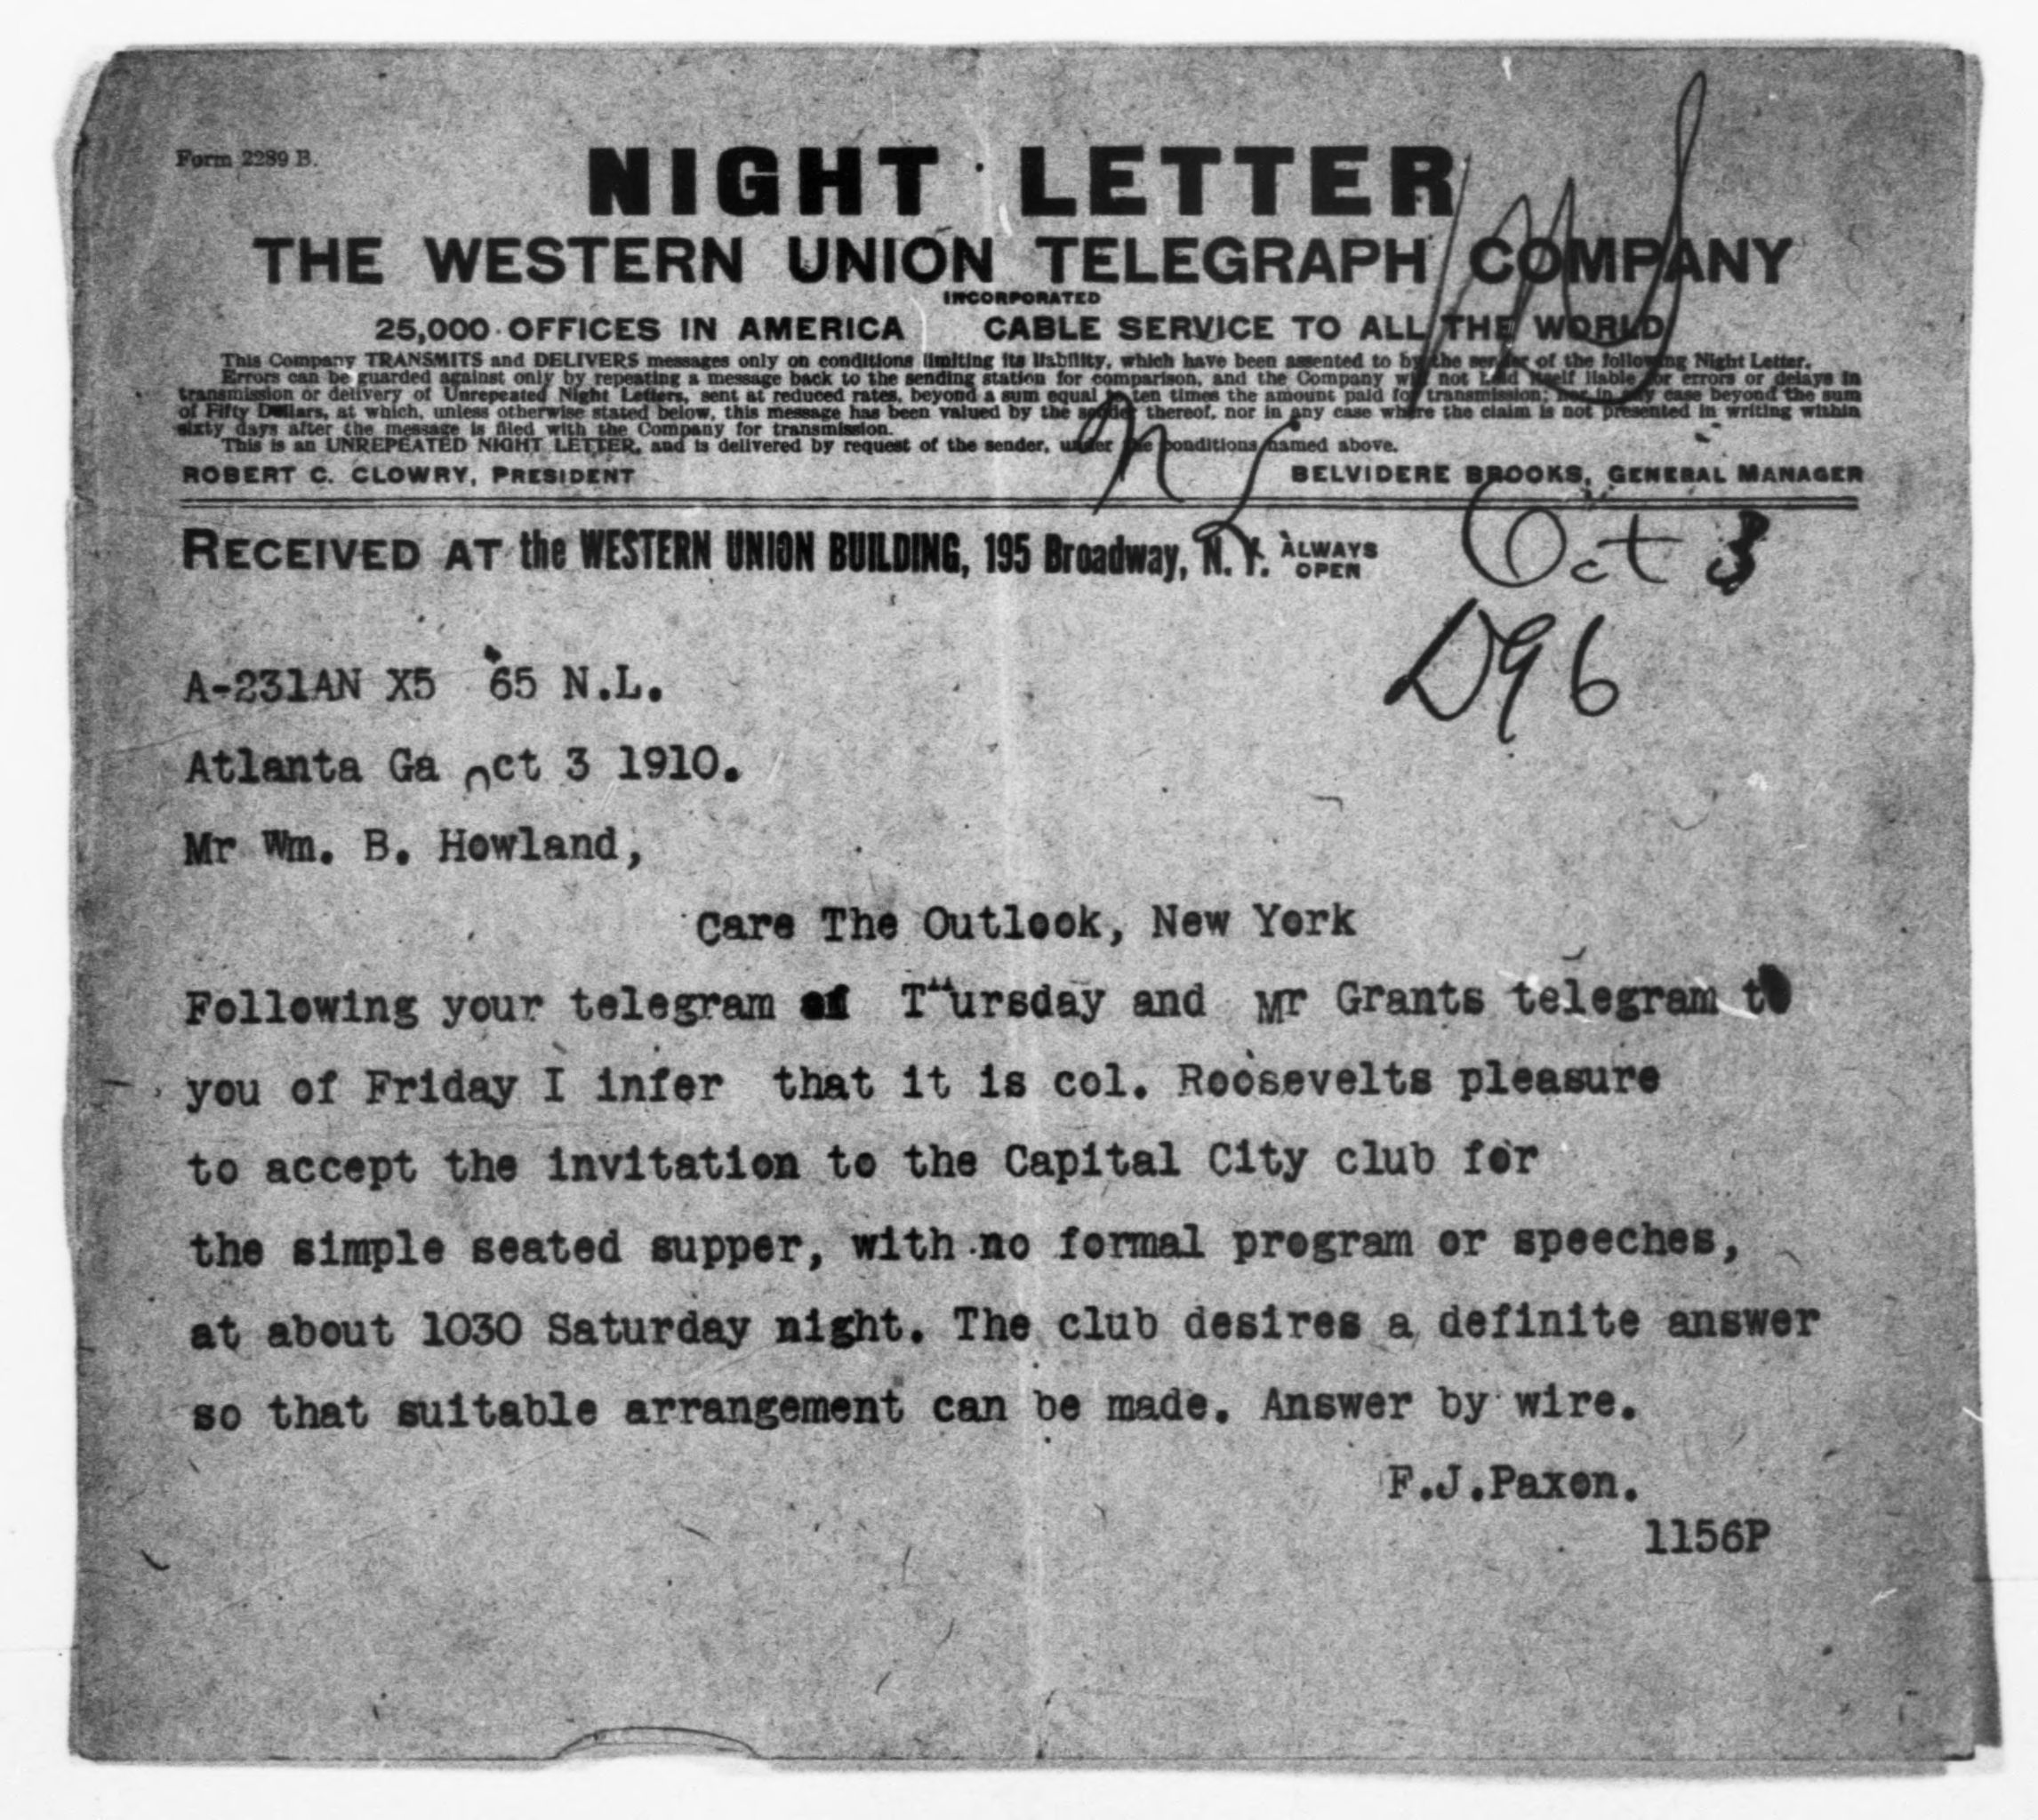 Form 2289 B.
NIGHT LETTER
THE WESTERN UNION TELEGRAPH COMPANY
INCORPORATED
25,000 OFFICES IN AMERICA CABLE SERVICE TO ALL THE WORLD
This Company TRANSMITS and DELIVERS messages only on conditions limiting its liability, which have been assented to by the sender of the following Night Letter.
Errors can be guarded against only by repeating a message back to the sending station for comparison, and the Company will not hold itself liable for errors or delays in
transmission or delivery of Unrepeated Night Letters, sent at reduced rates, beyond a sum equal to ten times the amount paid for transmission; nor in any case beyond the sum
of Fifty Dollars, at which, unless otherwise stated below, this message has been valued by the sender thereof, nor in any case where the claim is not presented in writing within
sixty days after the message is filed with the Company for transmission.
This is an UNREPEATED NIGHT LETTER, and is delivered by request of the sender, under the conditions named above.
ROBERT C. CLOWRY, PRESIDENT BELVIDERE BROOKS, GENERAL MANAGER
RECEIVED AT the WESTERN UNION BUILDING, 195 Broadway, N. Y. ALWAYS OPEN
Oct 3
D96
A-231AN X5 65 N.L.
Atlanta Ga Oct 3 1910.
Mr Wm. B. Howland,
Care The Outlook, New York
Following your telegram of Thursday and Mr Grants telegram to
you of Friday I infer that it is col. Roosevelts pleasure
to accept the invitation to the Capital City club for
the simple seated supper, with no formal program or speeches,
at about 1030 Saturday night. The club desires a definite answer
so that suitable arrangement can be made. Answer by wire.
F.J.Paxon.
1156P